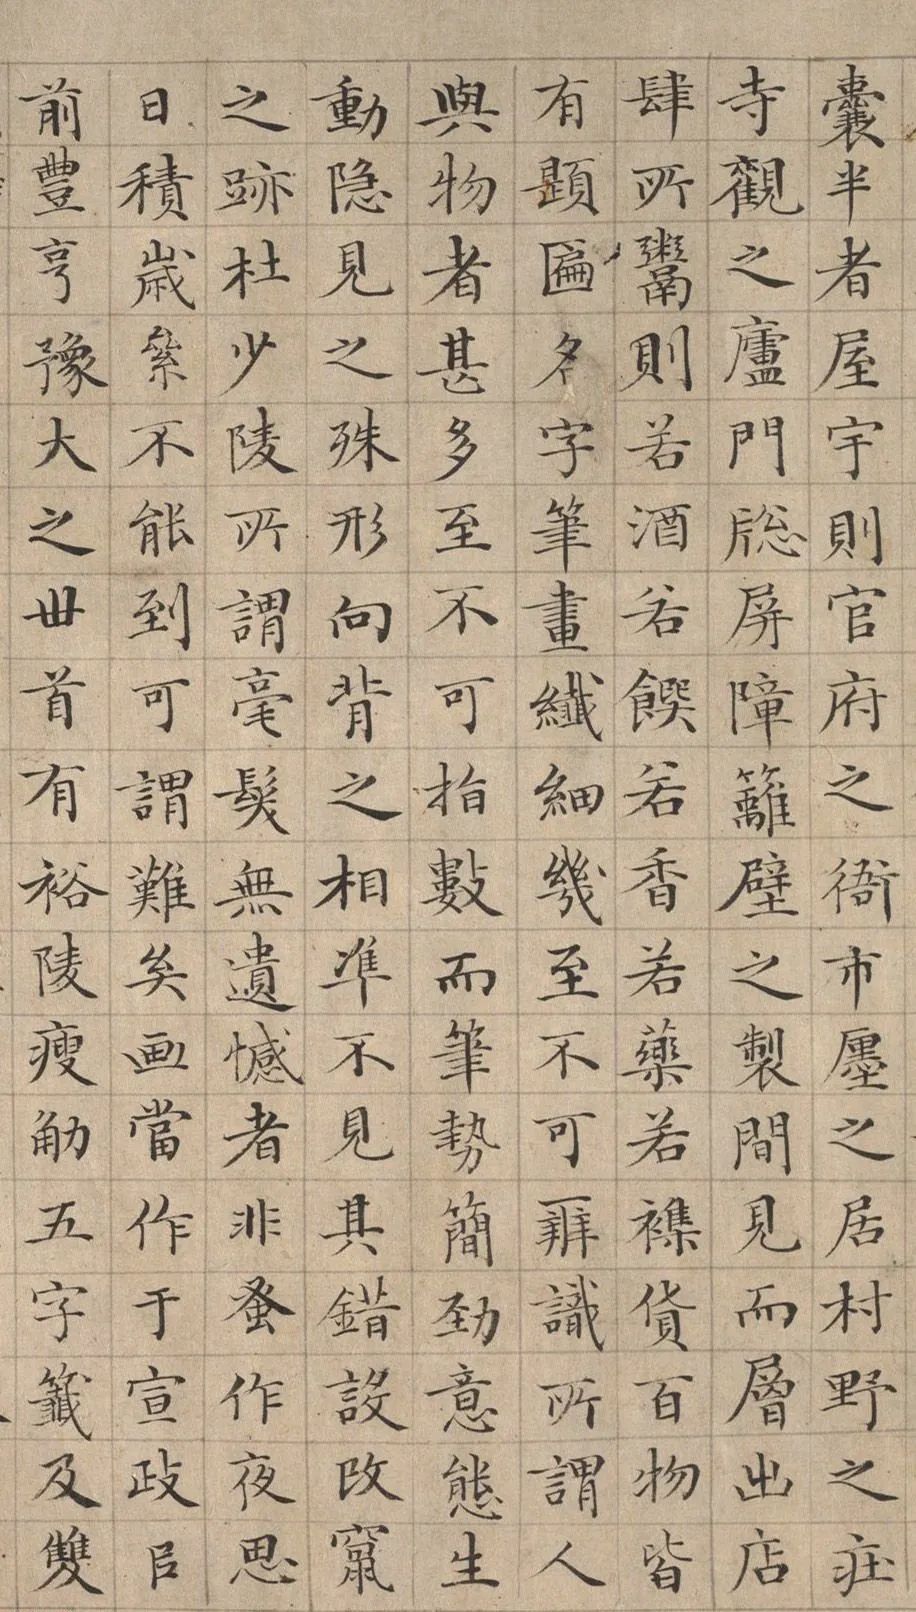 囊半者屋宇則官府之衙市廛之居村野之莊
寺觀之廬門牕屏障籬壁之製間見而層出店
肆所鬻則若酒若饌若香若藥若襍貨百物皆
有題匾名字筆畫纖細幾至不可辨識所謂人
與物者甚多至不可指數而筆勢簡勁意態生
動隐見之殊形向背之相準不見其錯誤改竄
之跡杜少陵所謂毫髮無遺憾者非蚤作夜思
日積歲絫不能到可謂難矣画當作于宣政以
前豐亨豫大之世首有裕陵瘦觔五字籤及雙